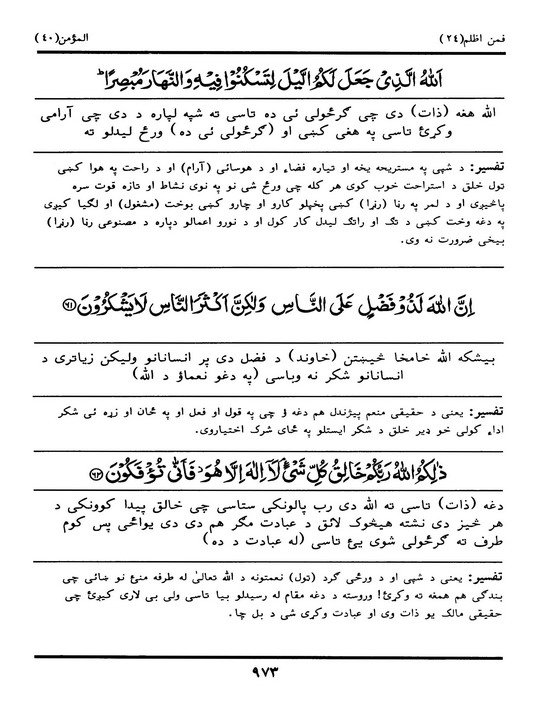 فمن اظلم(۲٤) المؤمن(٤٠)
اَللّٰهُ الَّذِیْ جَعَلَ لَكُمُ الَّیْلَ لِتَسْكُنُوْا فِیْهِ وَالنَّهَارَ مُبْصِرًا ؕ
الله هغه (ذات) دی چی گرځولی ئی ده تاسی ته شپه لپاره د دی چی آرامی
وکړئ تاسی په هغی کښی او (گرځولی ئی ده) ورځ لیدلو ته
تفسیر: د شپی په مستریحه یخه او تیاره فضاء او د هوسائی (آرام) او د راحت په هوا کښی
تول خلق د استراحت خوب کوی هر کله چی ورځ شی نو په نوی نشاط او تازه قوت سره
پاځیږی او د لمر په رڼا (رنړا) کښی پخپلو کارو او چارو کښی بوخت (مشغول) او لگیا کیږی
په دغه وخت کښی د تگ او راتگ لیدل کار کول او د نورو اعمالو دپاره د مصنوعی رڼا (رنړا)
بیخی ضرورت نه وی.
اِنَّ اللّٰهَ لَذُوْ فَضْلٍ عَلَی النَّاسِ وَلٰكِنَّ اَكْثَرَ النَّاسِ لَا یَشْكُرُوْنَ ﴿٦١﴾
بیشکه الله خامخا څیښتن (خاوند) د فضل دی پر انسانانو ولیکن زیاتری د
انسانانو شکر نه وباسی (په دغو نعماؤ د الله)
تفسیر: یعنی د حقیقی منعم پیژندل هم دغه ؤ چی په قول او فعل او په ځان او زړه ئی شکر
اداء کولی خو ډیر خلق د شکر ایستلو په ځای شرک اختیاروی.
ذٰلِكُمُ اللّٰهُ رَبُّكُمْ خَالِقُ كُلِّ شَیْءٍ لَاۤ اِلٰهَ اِلَّا هُوَ ۖ فَاَنّٰی تُؤْفَكُوْنَ ﴿٦٢﴾
دغه (ذات) تاسی ته الله دی رب پالونکی ستاسی چی خالق پیدا کوونکی د
هر څیز دی نشته هیڅوک لائق د عبادت مگر هم دی دی یواځی پس کوم
طرف ته گرځولی شوی یئ تاسی (له عبادت د ده)
تفسیر: یعنی د شپی او د ورځی گرد (تول) نعمتونه د الله تعالیٰ له طرفه منئ نو ښائی چی
بندگی هم همغه ته وکړئ! وروسته د دغه مقام له رسیدلو بیا تاسی ولی بی لاری کیږئ چی
حقیقی مالک یو ذات وی او عبادت وکړی شی د بل چا.
۹۷۳